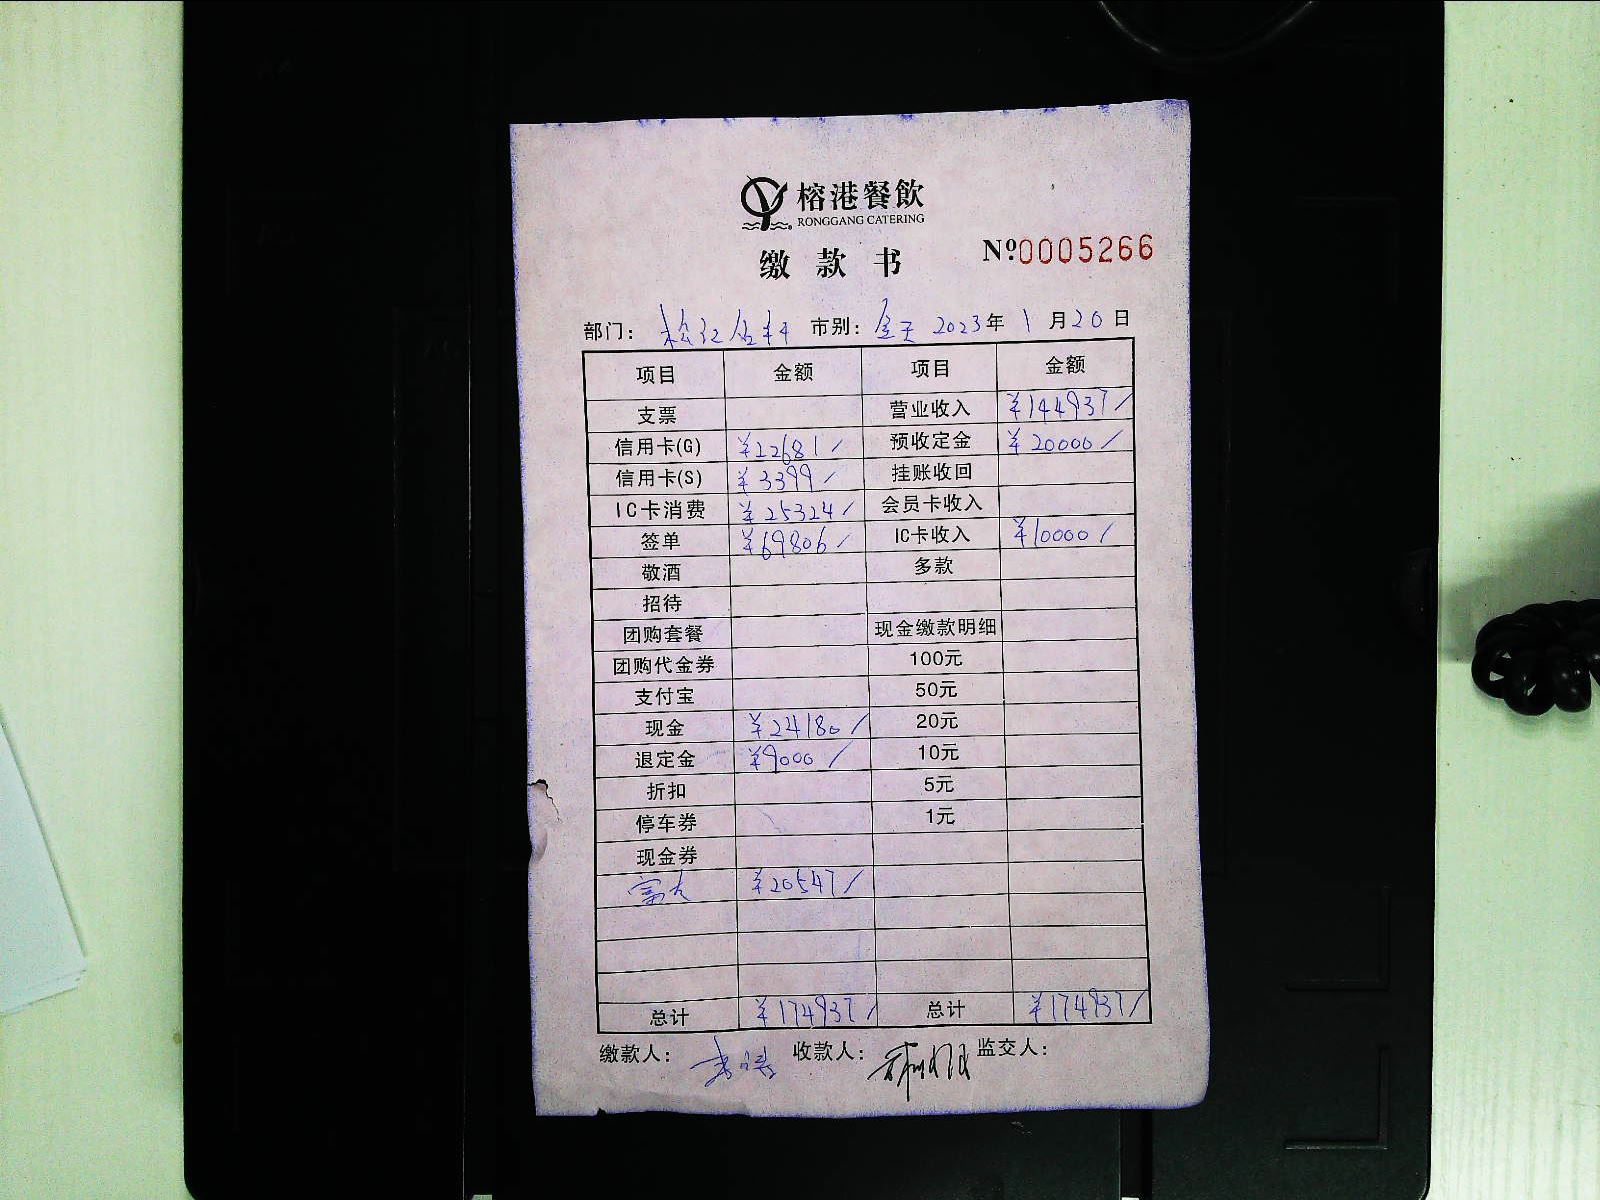 榕港餐飲
RONGGANG CATERING
缴款书 Nº:0005266
部门: 松江 市别: 全天 2023年1月20日
项目 金额 项目 金额
支票 营业收入 ¥144937/
信用卡(G) ¥22681/ 预收定金 ¥20000/
信用卡(S) ¥3399/ 挂账收回
IC卡消费 ¥25324/ 会员卡收入
签单 ¥69806/ IC卡收入 ¥10000/
敬酒 多款
招待
团购套餐 现金缴款明细
团购代金券 100元
支付宝 50元
现金 ¥24180/ 20元
退定金 ¥9000/ 10元
折扣 5元
停车券 1元
现金券
¥20547/
总计 ¥174937/ 总计 ¥174937/
缴款人: 收款人: 监交人: